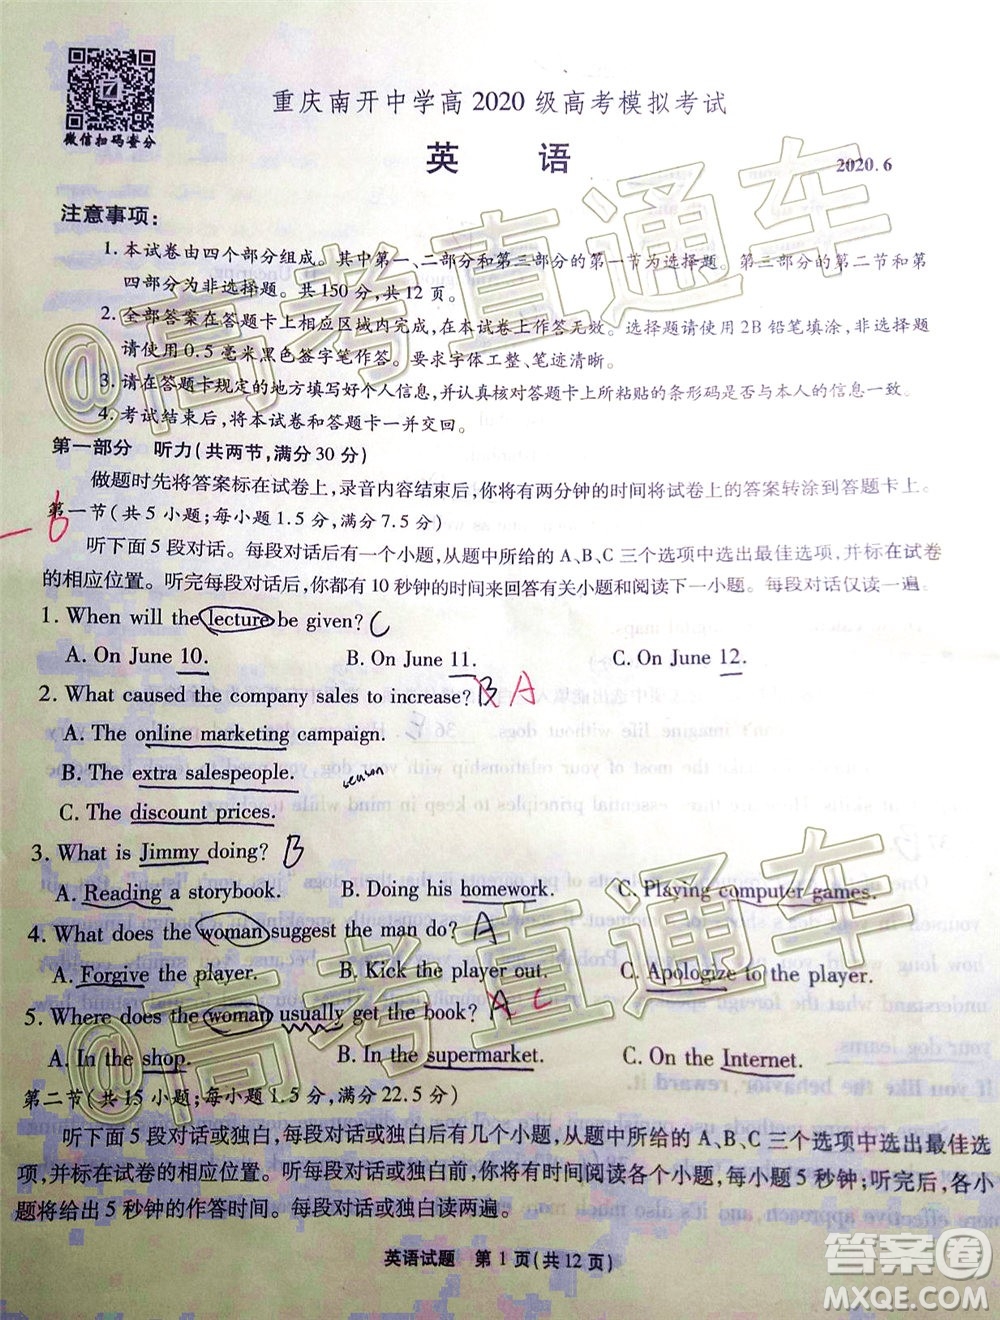 重庆南开中学高 2020 级高考模拟考试
微信扫码查分
英 语
2020.6
注意事项：
1. 本试卷由四个部分组成。其中第一、二部分和第三部分的第一节为选择题。第三部分的第二节和第
四部分为非选择题。共 150 分，共 12 页。
2. 全部答案在答题卡上相应区域内完成，在本试卷上作答无效。选择题请使用 2B 铅笔填涂，非选择
题请使用 0.5 毫米黑色签字笔作答。要求字体工整、笔迹清晰。
3. 请在答题卡规定的地方填写好个人信息，并认真核对答题卡上所粘贴的条形码是否与本人的信息一致。
4. 考试结束后，将本试卷和答题卡一并交回。
第一部分 听力（共两节，满分 30 分）
做题时先将答案标在试卷上，录音内容结束后，你将有两分钟的时间将试卷上的答案转涂到答题卡上。
第一节（共 5 小题；每小题 1.5 分，满分 7.5 分）
-6
听下面 5 段对话。每段对话后有一个小题，从题中所给的 A、B、C 三个选项中选出最佳选项，并标在试卷
的相应位置。听完每段对话后，你都有 10 秒钟的时间来回答有关小题和阅读下一小题。每段对话仅读一遍。
1. When will the lecture be given? C
A. On June 10. B. On June 11. C. On June 12.
2. What caused the company sales to increase? B A
A. The online marketing campaign.
B. The extra salespeople.
C. The discount prices.
3. What is Jimmy doing? B
A. Reading a storybook. B. Doing his homework. C. Playing computer games.
4. What does the woman suggest the man do? A
A. Forgive the player. B. Kick the player out. C. Apologize to the player.
5. Where does the woman usually get the book? A C
A. In the shop. B. In the supermarket. C. On the Internet.
第二节（共 15 小题；每小题 1.5 分，满分 22.5 分）
听下面 5 段对话或独白，每段对话或独白后有几个小题，从题中所给的 A、B、C 三个选项中选出最佳选
项，并标在试卷的相应位置。听每段对话或独白前，你将有时间阅读各个小题，每小题 5 秒钟；听完后，各小
题将给出 5 秒钟的作答时间。每段对话或独白读两遍。
英语试题 第 1 页（共 12 页）
@高考直通车
@高考直通车
答案卷
MXQE.COM